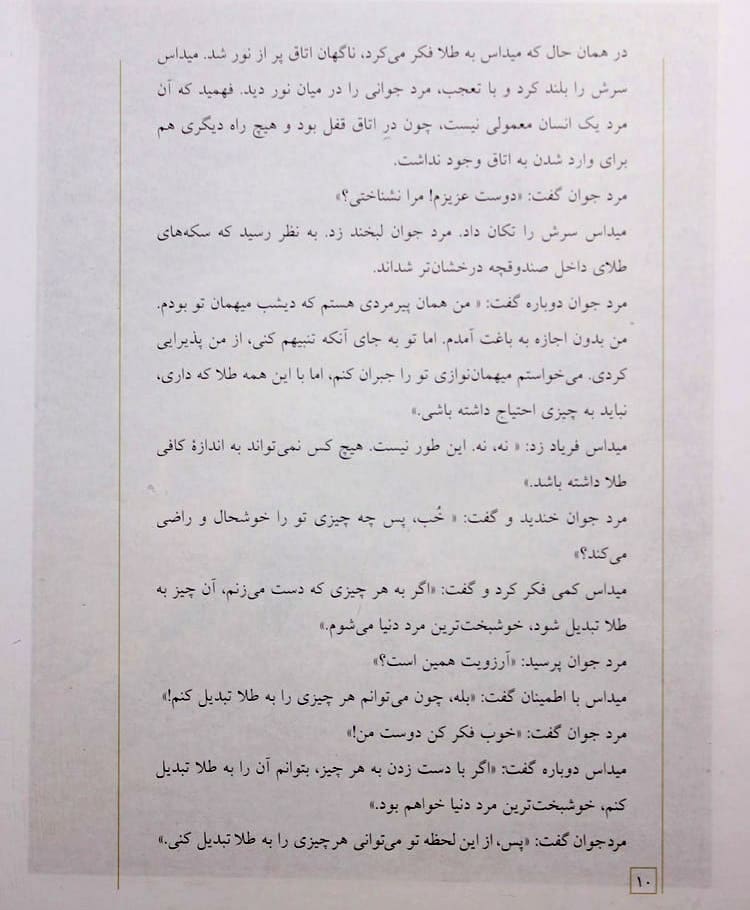 در همان حال که میداس به طلا فکر می‌کرد، ناگهان اتاق پر از نور شد. میداس
سرش را بلند کرد و با تعجب، مرد جوانی را در میان نور دید. فهمید که آن
مرد یک انسان معمولی نیست، چون درِ اتاق قفل بود و هیچ راه دیگری هم
برای وارد شدن به اتاق وجود نداشت.
مرد جوان گفت: «دوست عزیزم! مرا نشناختی؟»
میداس سرش را تکان داد. مرد جوان لبخند زد. به نظر رسید که سکه‌های
طلای داخل صندوقچه درخشان‌تر شداند.
مرد جوان دوباره گفت: « من همان پیرمردی هستم که دیشب میهمان تو بودم.
من بدون اجازه به باغت آمدم. اما تو به جای آنکه تنبیهم کنی، از من پذیرایی
کردی. می‌خواستم میهمان‌نوازی تو را جبران کنم، اما با این همه طلا که داری،
نباید به چیزی احتیاج داشته باشی.»
میداس فریاد زد: « نه، نه. این طور نیست. هیچ کس نمی‌تواند به اندازهٔ کافی
طلا داشته باشد.»
مرد جوان خندید و گفت: « خُب، پس چه چیزی تو را خوشحال و راضی
می‌کند؟»
میداس کمی فکر کرد و گفت: «اگر به هر چیزی که دست می‌زنم، آن چیز به
طلا تبدیل شود، خوشبخت‌ترین مرد دنیا می‌شوم.»
مرد جوان پرسید: «آرزویت همین است؟»
میداس با اطمینان گفت: «بله، چون می‌توانم هر چیزی را به طلا تبدیل کنم!»
مرد جوان گفت: «خوب فکر کن دوست من!»
میداس دوباره گفت: «اگر با دست زدن به هر چیز، بتوانم آن را به طلا تبدیل
کنم، خوشبخت‌ترین مرد دنیا خواهم بود.»
مردجوان گفت: «پس، از این لحظه تو می‌توانی هرچیزی را به طلا تبدیل کنی.»
۱۰